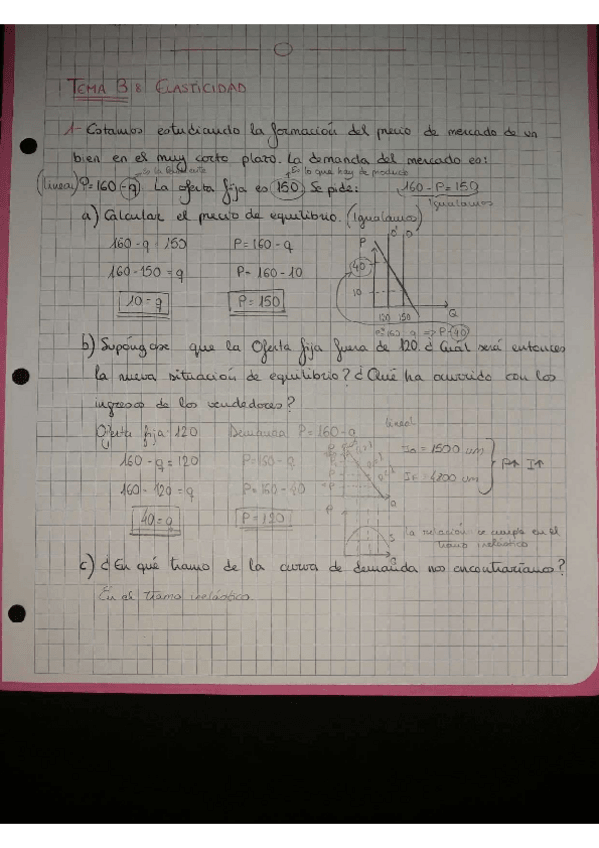 TEMA 3: ELASTICIDAD
1- Estamos estudiando la formación del precio de mercado de un
bien en el muy corto plazo. La demanda del mercado es:
Es lo que hay de producto
(lineal) P=160-q La oferta fija es 150 Se pide: 160-P=150
Igualamos
a) Calcular el precio de equilibrio. (Igualamos)
160-q=150 P=160-q
160-150=q P=160-10
10=q P=150
P
40
10
120 150 Q
b) Supóngase que la Oferta fija fuera de 120. ¿Cuál será entonces
la nueva situación de equilibrio? ¿Qué ha ocurrido con los
ingresos de los vendedores?
lineal
Oferta fija=120 Demanda P=160-q
160-q=120 P=160-q
160-120=q P=160-40
40=q P=120
= 1500 um
= 4800 um
P↑ I↑
la relación se cumple en el
tramo inelástico
c) ¿En qué tramo de la curva de demanda nos encontraríamos?
En el tramo inelástico.